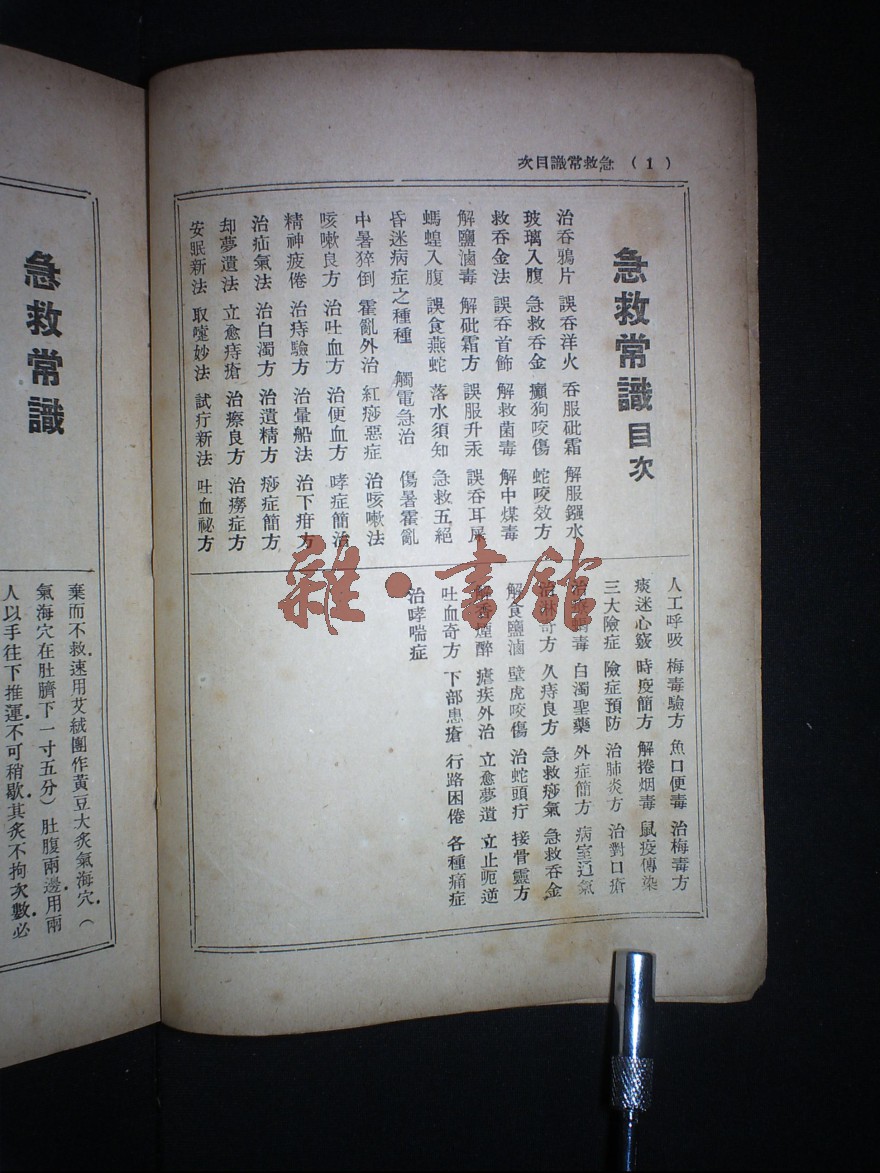 次目識常救急 （1）
急救常識目次
治吞鴉片 誤吞洋火 吞服砒霜 解服鏹水
玻璃入腹 急救吞金 癲狗咬傷 蛇咬效方
救吞金法 誤吞首飾 解救菌毒 解中煤毒
解鹽滷毒 解砒霜方 誤服升汞 誤吞耳屎
螞蝗入腹 誤食燕蛇 落水須知 急救五絕
昏迷病症之種種 觸電急治 傷暑霍亂
中暑猝倒 霍亂外治 紅痧惡症 治咳嗽法
咳嗽良方 治吐血方 治便血方 哮症簡治
精神疲倦 治痔驗方 治暈船法 治下疳方
治疝氣法 治白濁方 治遺精方 痧症簡方
却夢遺法 立愈痔瘡 治瘵良方 治癆症方
安眠新法 取嚏妙法 試疔新法 吐血祕方
人工呼吸 梅毒驗方 魚口便毒 治梅毒方
痰迷心竅 時疫簡方 解捲烟毒 鼠疫傳染
三大險症 險症預防 治肺炎方 治對口瘡
毒 白濁聖藥 外症簡方 病室通氣
方 久痔良方 急救痧氣 急救吞金
解食鹽滷 壁虎咬傷 治蛇頭疔 接骨靈方
煙醉 瘧疾外治 立愈夢遺 立止呃逆
吐血奇方 下部患瘡 行路困倦 各種痛症
治哮喘症
雜·書館
急救常識
棄而不救速用艾絨團作黃豆大炙氣海穴（
氣海穴在肚臍下一寸五分）肚腹兩邊用兩
人以手往下推運不可稍歇其炙不拘次數必